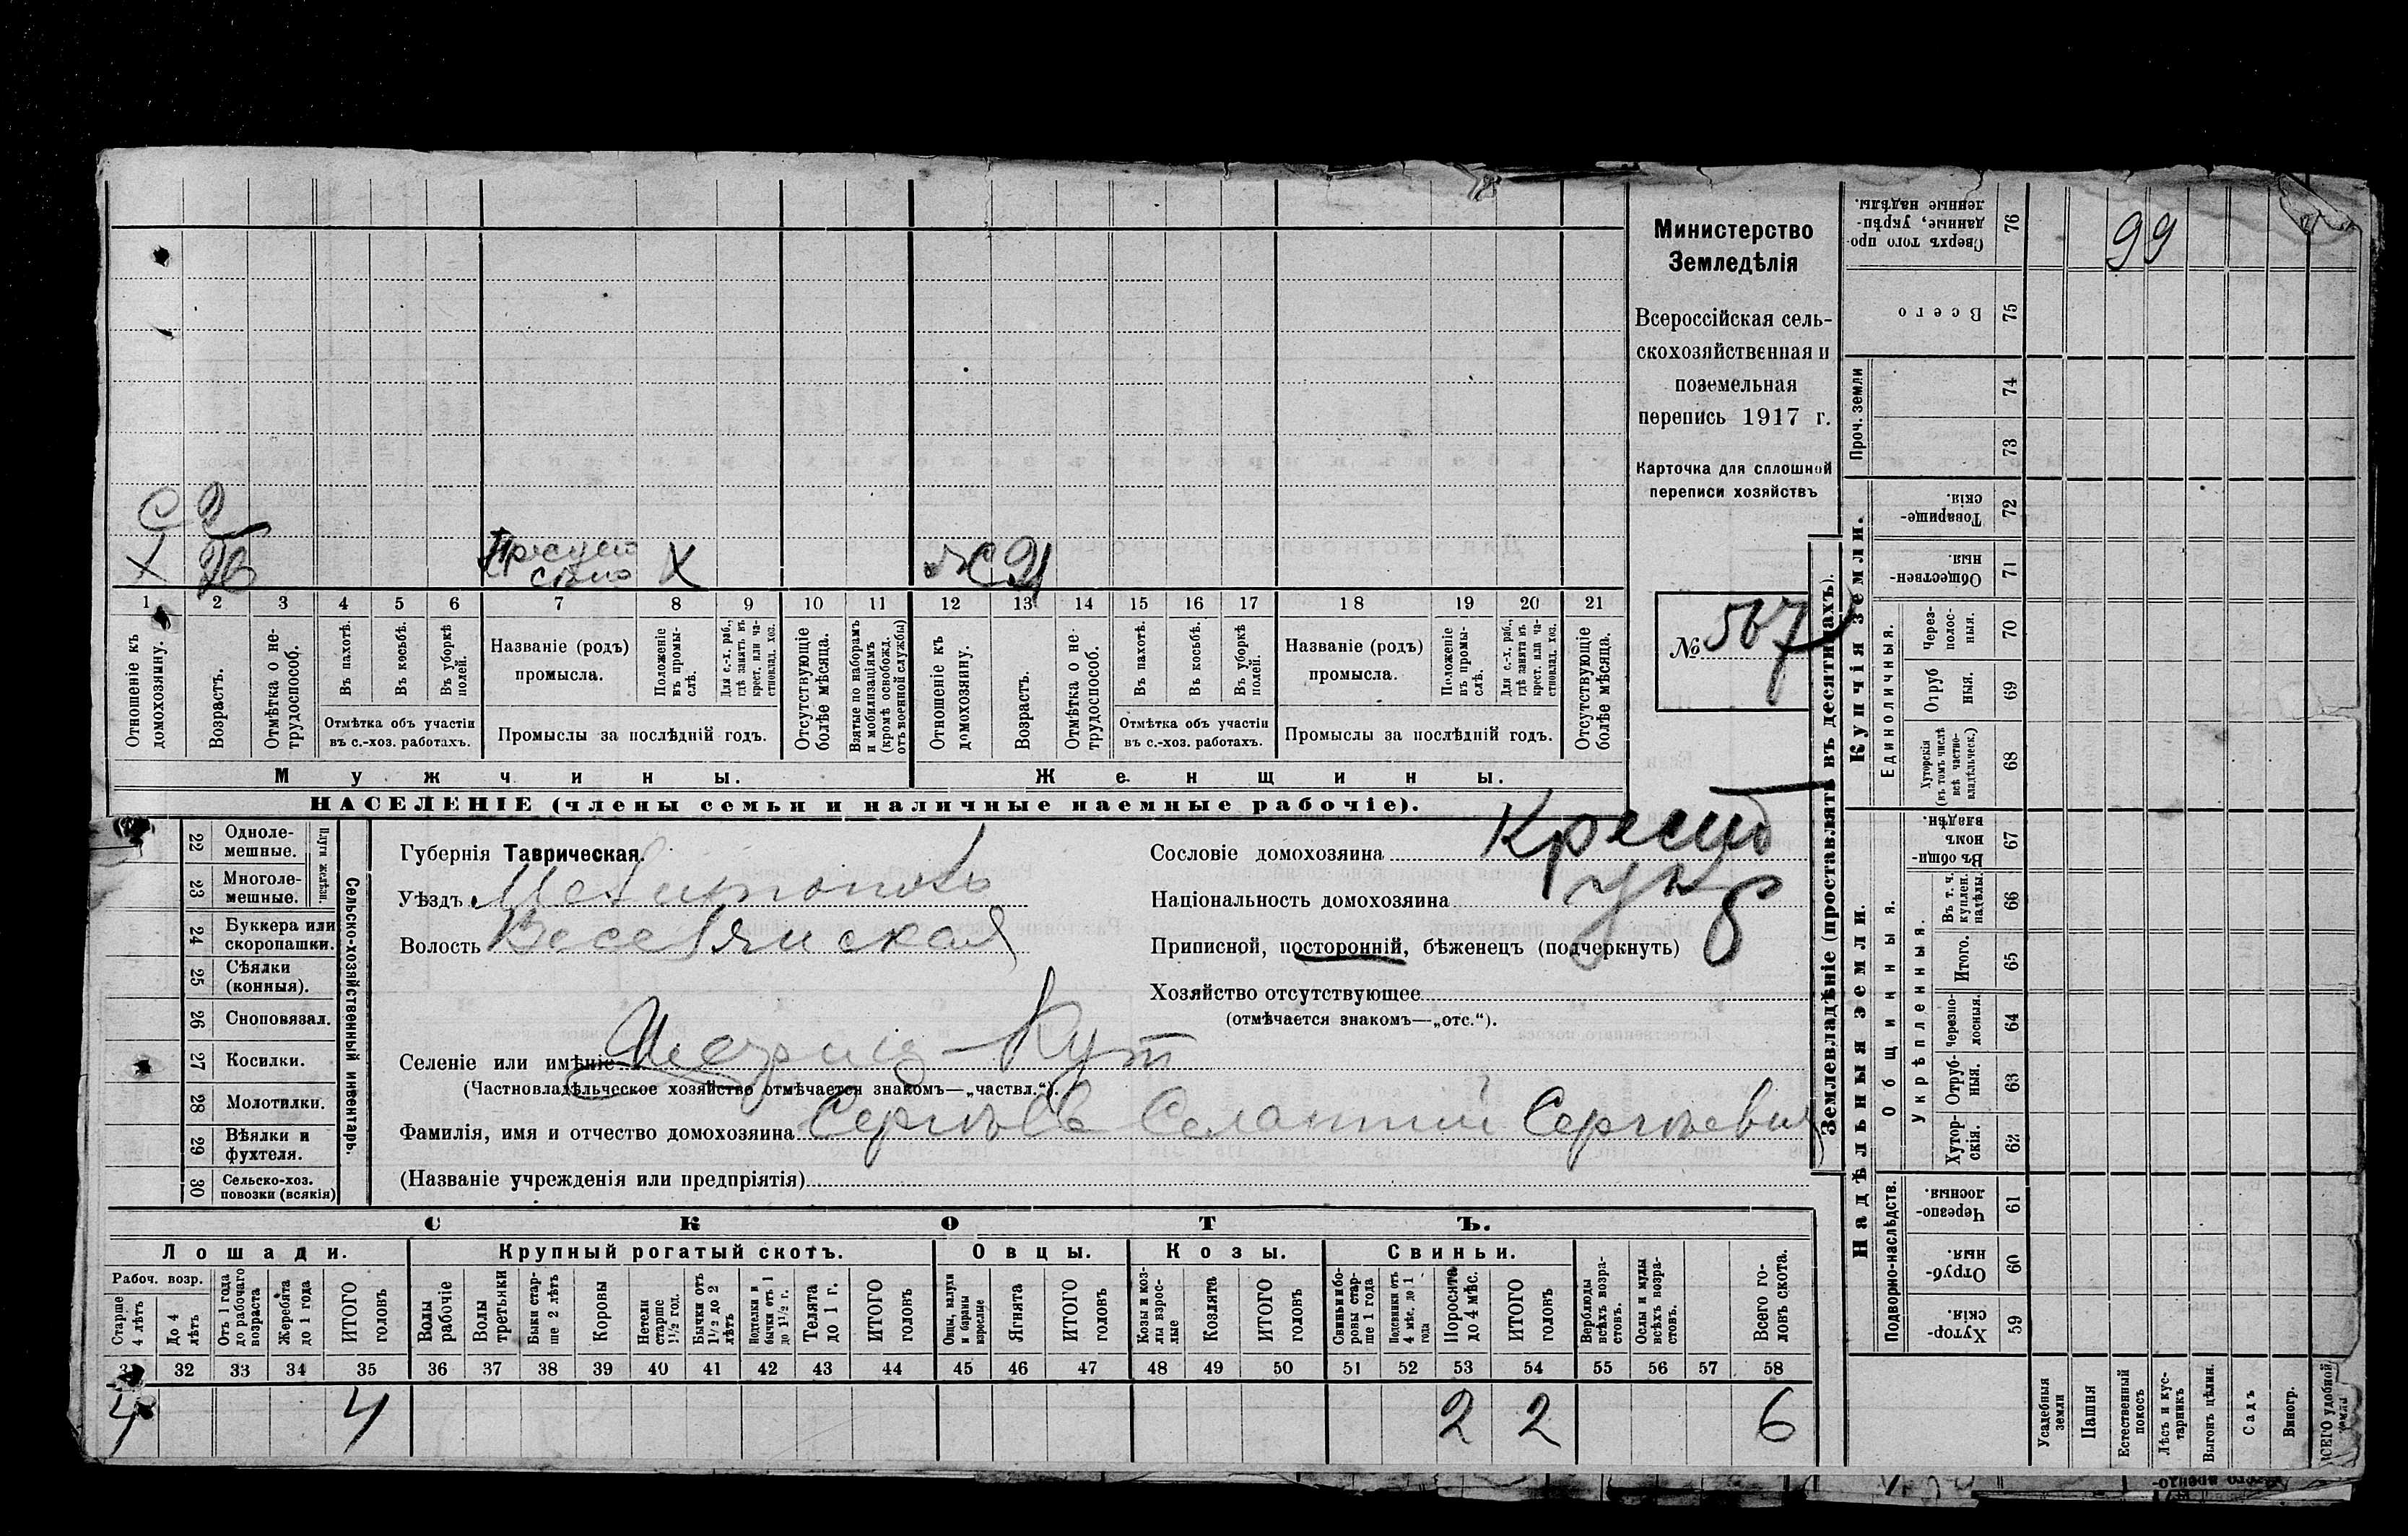 Министерство
Земледѣлія
Всероссійская сель-
скохозяйственная и
поземельная
перепись 1917 г.
Карточка для сплошной
переписи хозяйствъ
№ 567
99
С 2
X 26
X
С 21
1 2 3 4 5 6 7 8 9 10 11 12 13 14 15 16 17 18 19 20 21
Отношеніе къ домохозяину.
Возрастъ.
Отмѣтка о нетрудоспособ.
Въ пахотѣ.
Въ косьбѣ.
Въ уборкѣ полей.
Отмѣтка объ участіи
въ с.-хоз. работахъ.
Названіе (родъ)
промысла.
Положеніе въ промыслѣ.
Для с.-х. раб., гдѣ занятъ въ крест. или частновлад. хоз.
Промыслы за послѣдній годъ.
Отсутствующіе болѣе мѣсяца.
Взятые по наборамъ и мобилизаціямъ (кромѣ освобожд. отъ военной службы)
Отношеніе къ домохозяину.
Возрастъ.
Отмѣтка о нетрудоспособ.
Въ пахотѣ.
Въ косьбѣ.
Въ уборкѣ полей.
Отмѣтка объ участіи
въ с.-хоз. работахъ.
Названіе (родъ)
промысла.
Положеніе въ промыслѣ.
Для с.-х. раб., гдѣ занята въ крест. или частновлад. хоз.
Промыслы за послѣдній годъ.
Отсутствующіе болѣе мѣсяца.
Мужчины.
Женщины.
НАСЕЛЕНІЕ (члены семьи и наличные наемные рабочіе).
Сельско-хозяйственный инвентарь.
Плуги желѣзн.
22 Однолемешные.
23 Многолемешные.
24 Буккера или скоропашки.
25 Сѣялки (конныя).
26 Сноповязал.
27 Косилки.
28 Молотилки.
29 Вѣялки и фухтеля.
30 Сельско-хоз. повозки (всякія)
Губернія Таврическая.
Уѣздъ Мелитополь
Волость Веселянская
Селеніе или имѣніе Шегрид-Кут
(Частновладѣльческое хозяйство отмѣчается знакомъ—„частвл.“).
Фамилія, имя и отчество домохозяина Сергѣевъ Сергѣевич
(Названіе учрежденія или предпріятія)
Сословіе домохозяина Крест
Національность домохозяина Укр
Приписной, посторонній, бѣженецъ (подчеркнуть) б
Хозяйство отсутствующее
(отмѣчается знакомъ—„отс.“).
СКОТЪ.
Лошади.
Крупный рогатый скотъ.
Овцы.
Козы.
Свиньи.
Рабоч. возр.
Старше 4 лѣтъ
До 4 лѣтъ
Отъ 1 года до рабочаго возраста
Жеребята до 1 года
ИТОГО головъ
Волы рабочіе
Волы третьяки
Быки старше 2 лѣтъ
Коровы
Нетели старше 1½ год.
Бычки отъ 1½ до 2 лѣтъ
Подтелки и бычки отъ 1 до 1½ г.
Телята до 1 г.
ИТОГО головъ
Овцы, валухи и бараны взрослые
Ягнята
ИТОГО головъ
Козы и козлы взрослые
Козлята
ИТОГО головъ
Свиньи и боровы старше 1 года
Подсвинки отъ 4 мѣс. до 1 года
Поросята до 4 мѣс.
ИТОГО головъ
Верблюды всѣхъ возрастовъ.
Ослы и мулы всѣхъ возрастовъ.
Всего головъ скота.
31 32 33 34 35 36 37 38 39 40 41 42 43 44 45 46 47 48 49 50 51 52 53 54 55 56 57 58
4 4 2 2 6
Землевладѣніе (проставлять въ десятинахъ).
Купчія земли.
Надѣльныя земли.
Проч. земли
Единоличныя.
Общинныя.
Укрѣпленныя.
Подворно-наслѣдств.
76 Сверхъ того проданные, укрѣпленные надѣлы.
75 Всего
74
73
72 Товарищескія.
71 Общественныя
70 Черезполосныя.
69 Отрубныя.
68 Хуторскія (въ томъ числѣ всѣ частновладѣльческ.)
67 Въ общинномъ владѣн.
66 Въ т. ч. куплен. надѣлы.
65 Итого.
64 Черезполосныя.
63 Отрубныя.
62 Хуторскія.
61 Черезполосныя.
60 Отрубныя.
59 Хуторскія.
Усадебныя земли
Пашня
Естественный покосъ
Лѣсъ и кустарникъ
Выгонъ цѣлин.
Садъ
Виногр.
ВСЕГО удобной земли